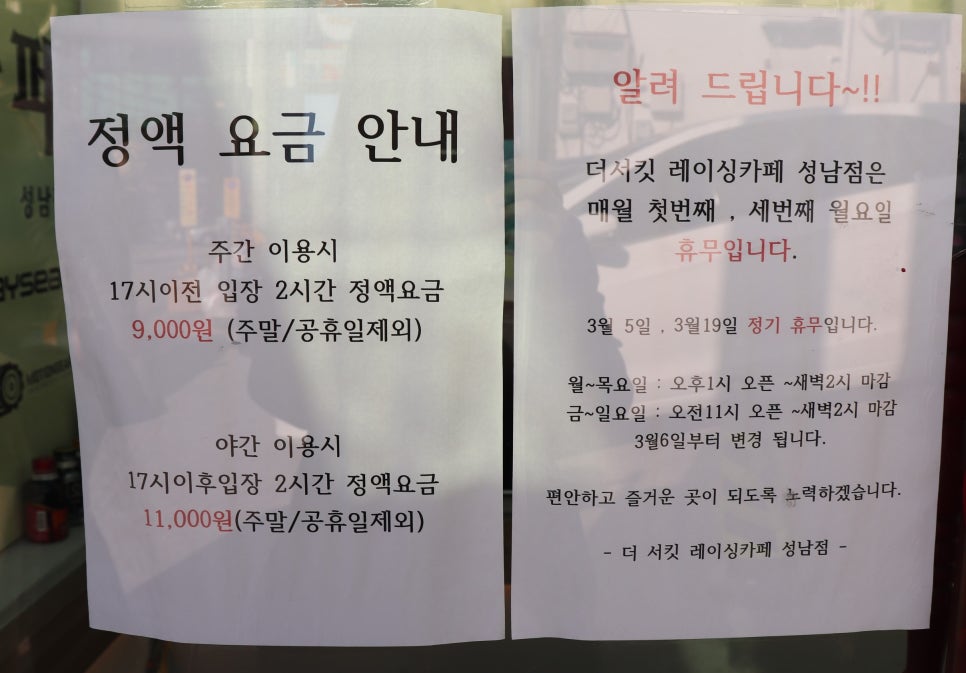 정액 요금 안내
주간 이용시
17시이전 입장 2시간 정액요금
9,000원 (주말/공휴일제외)
야간 이용시
17시이후입장 2시간 정액요금
11,000원(주말/공휴일제외)
알려 드립니다~!!
더서킷 레이싱카페 성남점은
매월 첫번째 , 세번째 월요일
휴무입니다.
3월 5일 , 3월19일 정기 휴무입니다.
월~목요일 : 오후1시 오픈 ~새벽2시 마감
금~일요일 : 오전11시 오픈 ~새벽2시 마감
3월6일부터 변경 됩니다.
편안하고 즐거운 곳이 되도록 노력하겠습니다.
- 더 서킷 레이싱카페 성남점 -
성남